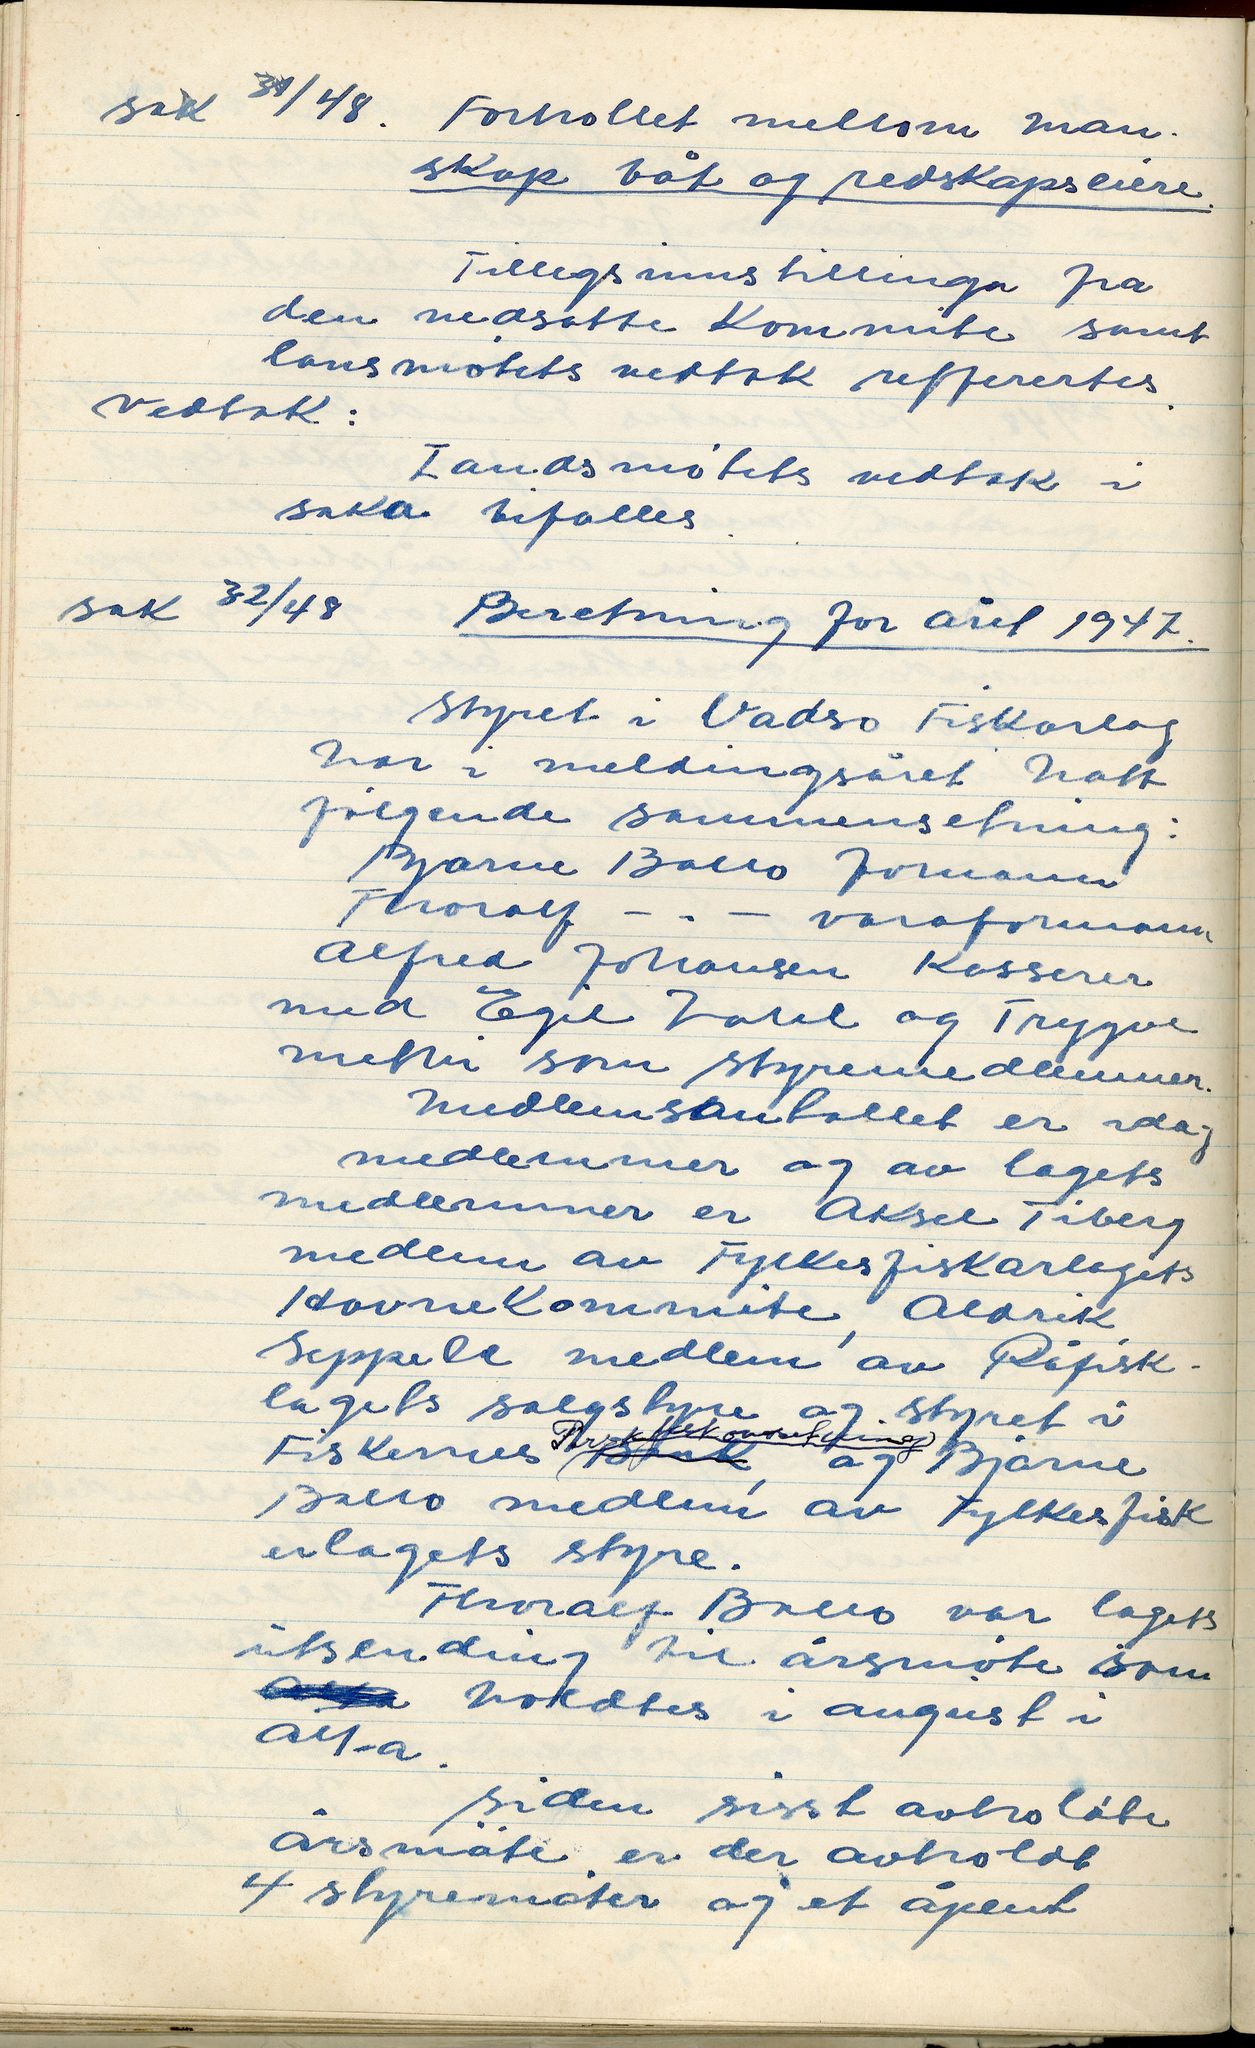 sak 31/48. Forhollet mellom man-
skap båt og redskapseiere.
Tillegsinnstillinga fra
den nedsatte Kommite samt
lansmøtets vedtak refferertes.
Vedtak:
Landsmøtets vedtak i
saka bifalles.
sak 32/48 Beretning for året 1947.
Styret i Vadsø Fiskarlag
har i meldingsåret hatt
følgende sammensetning:
Bjarne Ballo formann
Thoralf - . - varaformann
Alfred Johansen Kasserer
med Egil Zahl og Trygve
som styremedlemmer.
Medlemsantallet er idag
medlemmer og av lagets
medlemmer er Aksel Tiberg
medlem av Fylkesfiskarlagets
Havnekommite, Aldrik
Seppelæ medlem av Råfisk-
lagets salgstyre og styret i
Fiskernes Bank, og Bjarne
Ballo medlem av Fylkesfisk
erlagets styre.
Thoralf Ballo var lagets
utsending til årsmøte som
Alta holdtes i august i
Alta.
Siden sisst avholdte
årsmøte er der avholdt
4 styremøter og et åpent